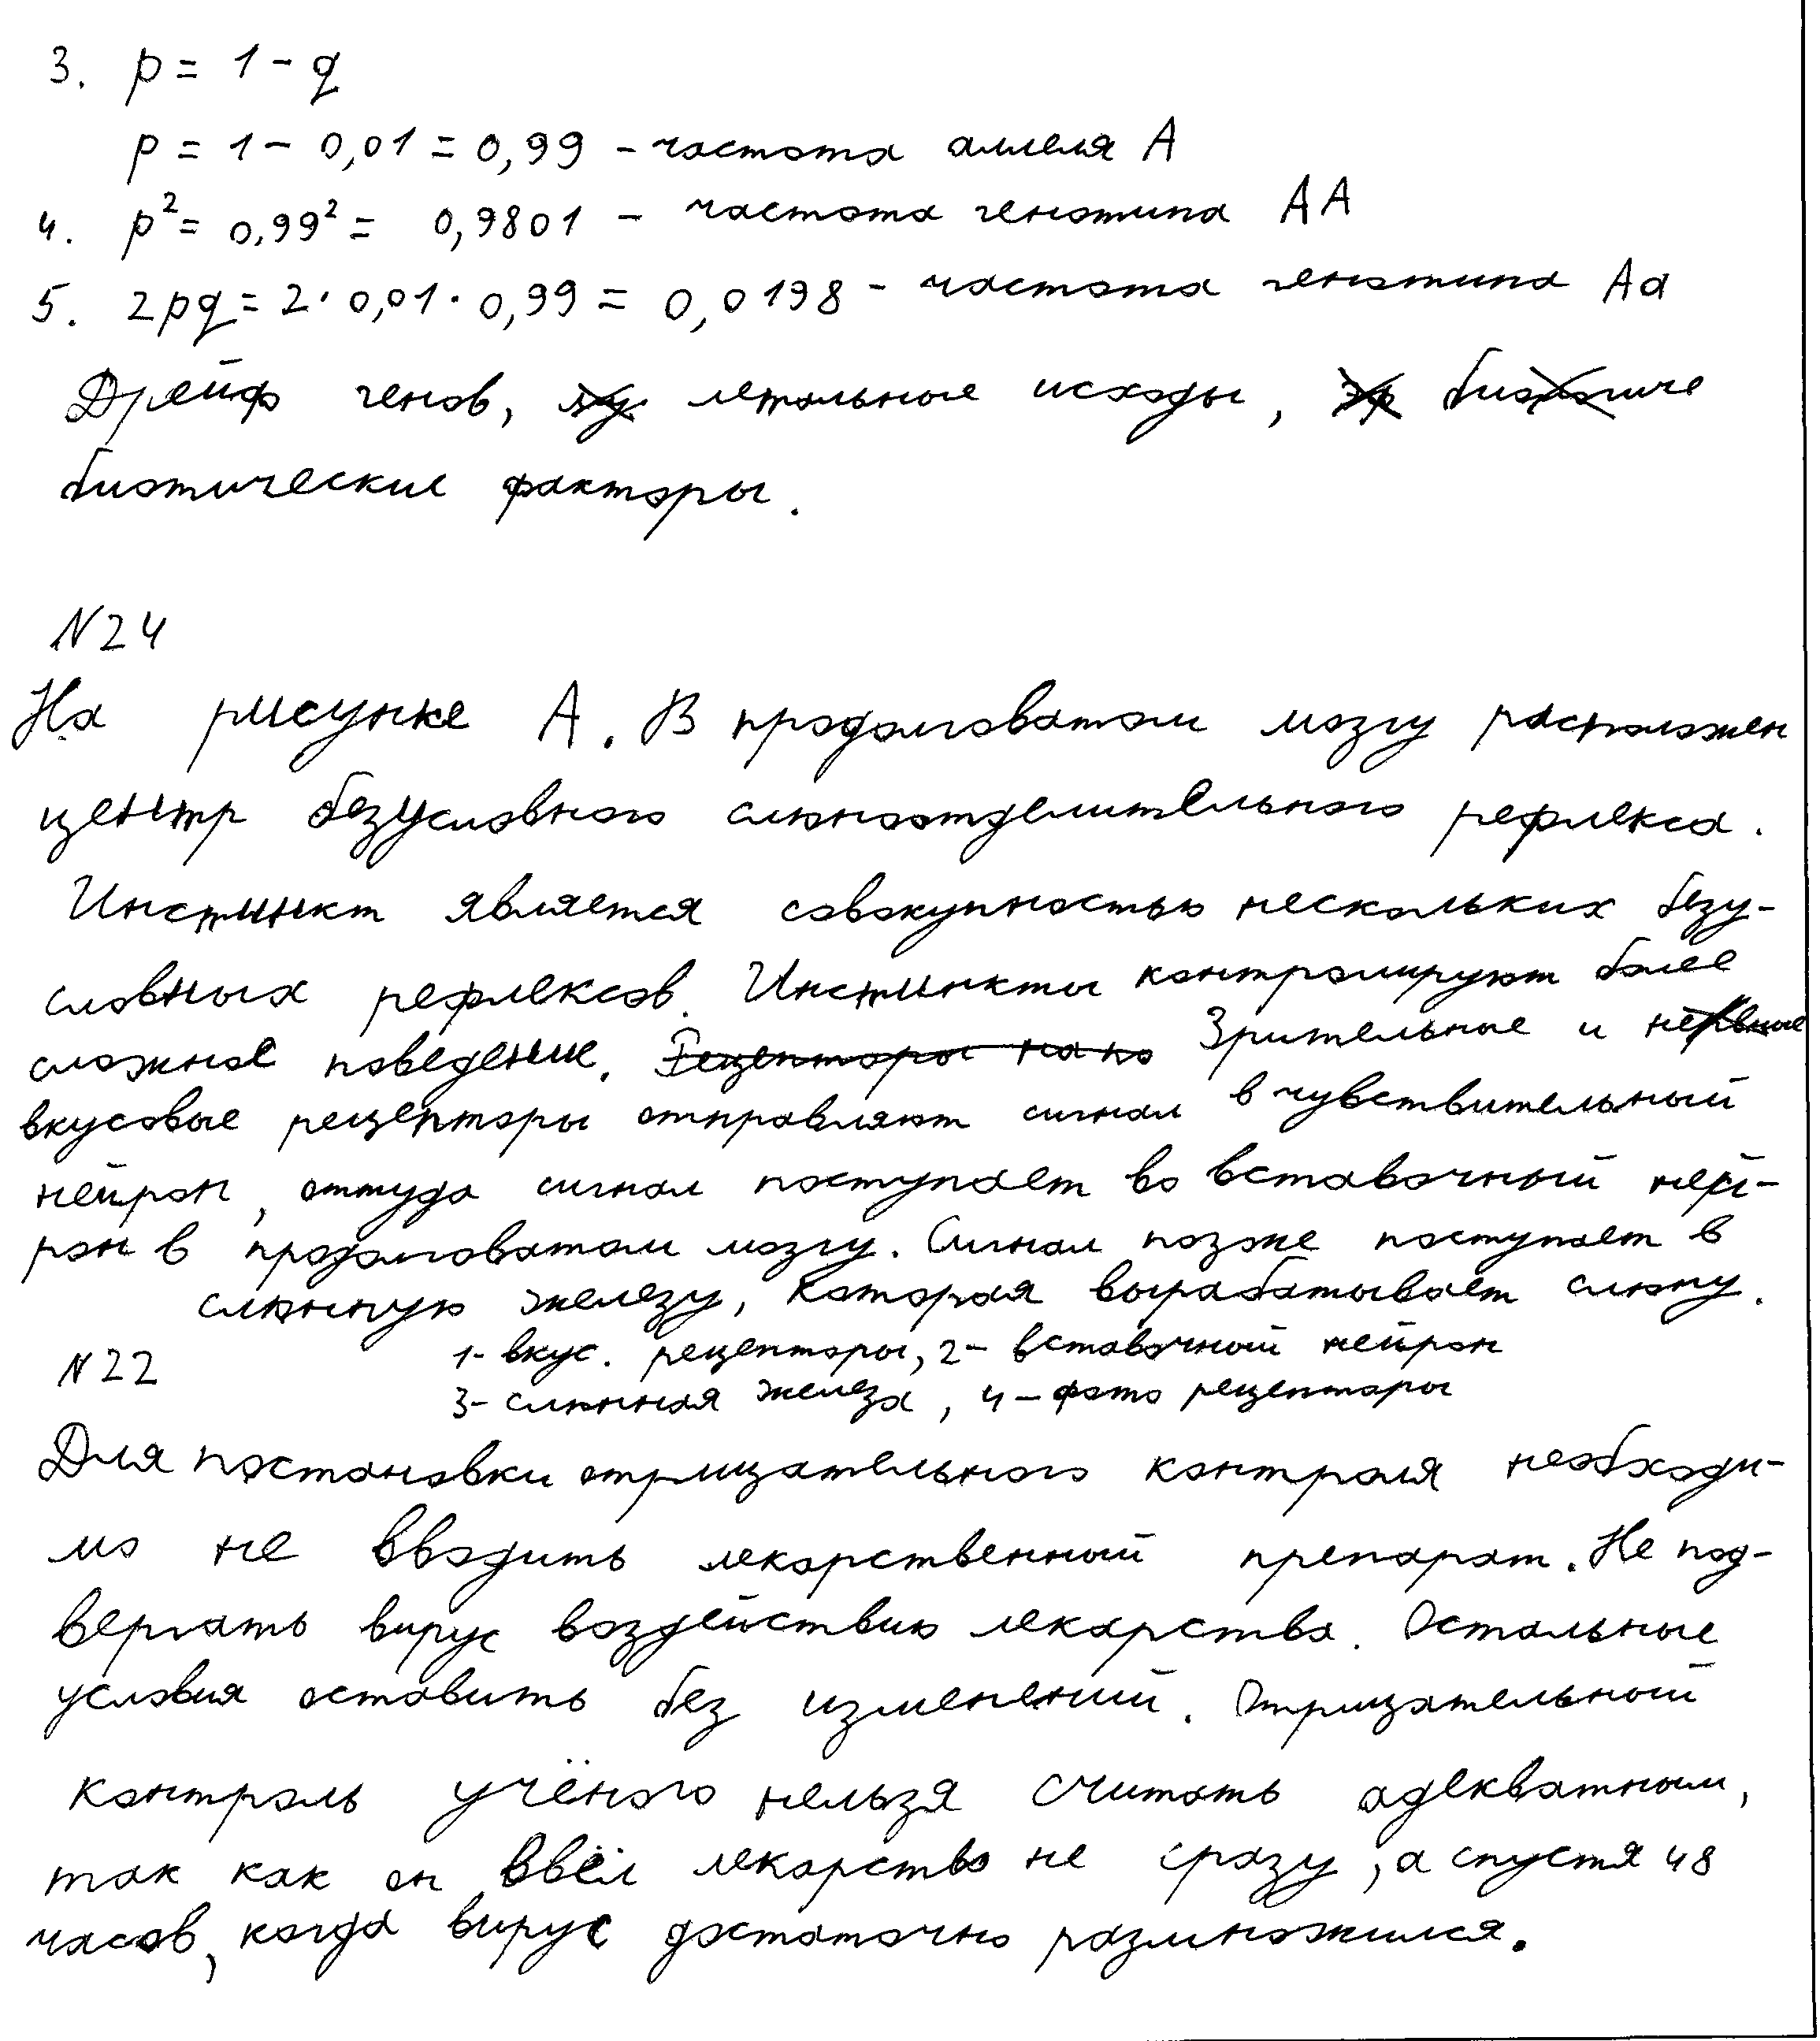 3. p = 1 - q
p = 1 - 0,01 = 0,99 - частота аллеля А
4. p² = 0,99² = 0,9801 - частота генотипа АА
5. 2pq = 2 · 0,01 · 0,99 = 0,0198 - частота генотипа Аа
Дрейф генов, летальные исходы,
биотические факторы.
N24
На рисунке А. В продолговатом мозгу расположен
центр безусловного слюноотделительного рефлекса.
Инстинкт является совокупностью нескольких безу-
словных рефлексов. Инстинкты контролируют более
сложное поведение. Рецепторы на по Зрительные и нервные
вкусовые рецепторы отправляют сигнал в чувствительный
нейрон, оттуда сигнал поступает во вставочный ней-
рон в продолговатом мозгу. Сигнал позже поступает в
слюнную железу, которая вырабатывает слюну.
1- вкус. рецепторы, 2- вставочный нейрон
N22
3- слюнная железа, 4- фото рецепторы
Для постановки отрицательного контроля необходи-
мо не вводить лекарственный препарат. Не под-
вергать вирус воздействию лекарства. Остальные
условия оставить без изменений. Отрицательный
контроль учёного нельзя считать адекватным,
так как он ввёл лекарство не сразу, а спустя 48
часов, когда вирус достаточно размножился.